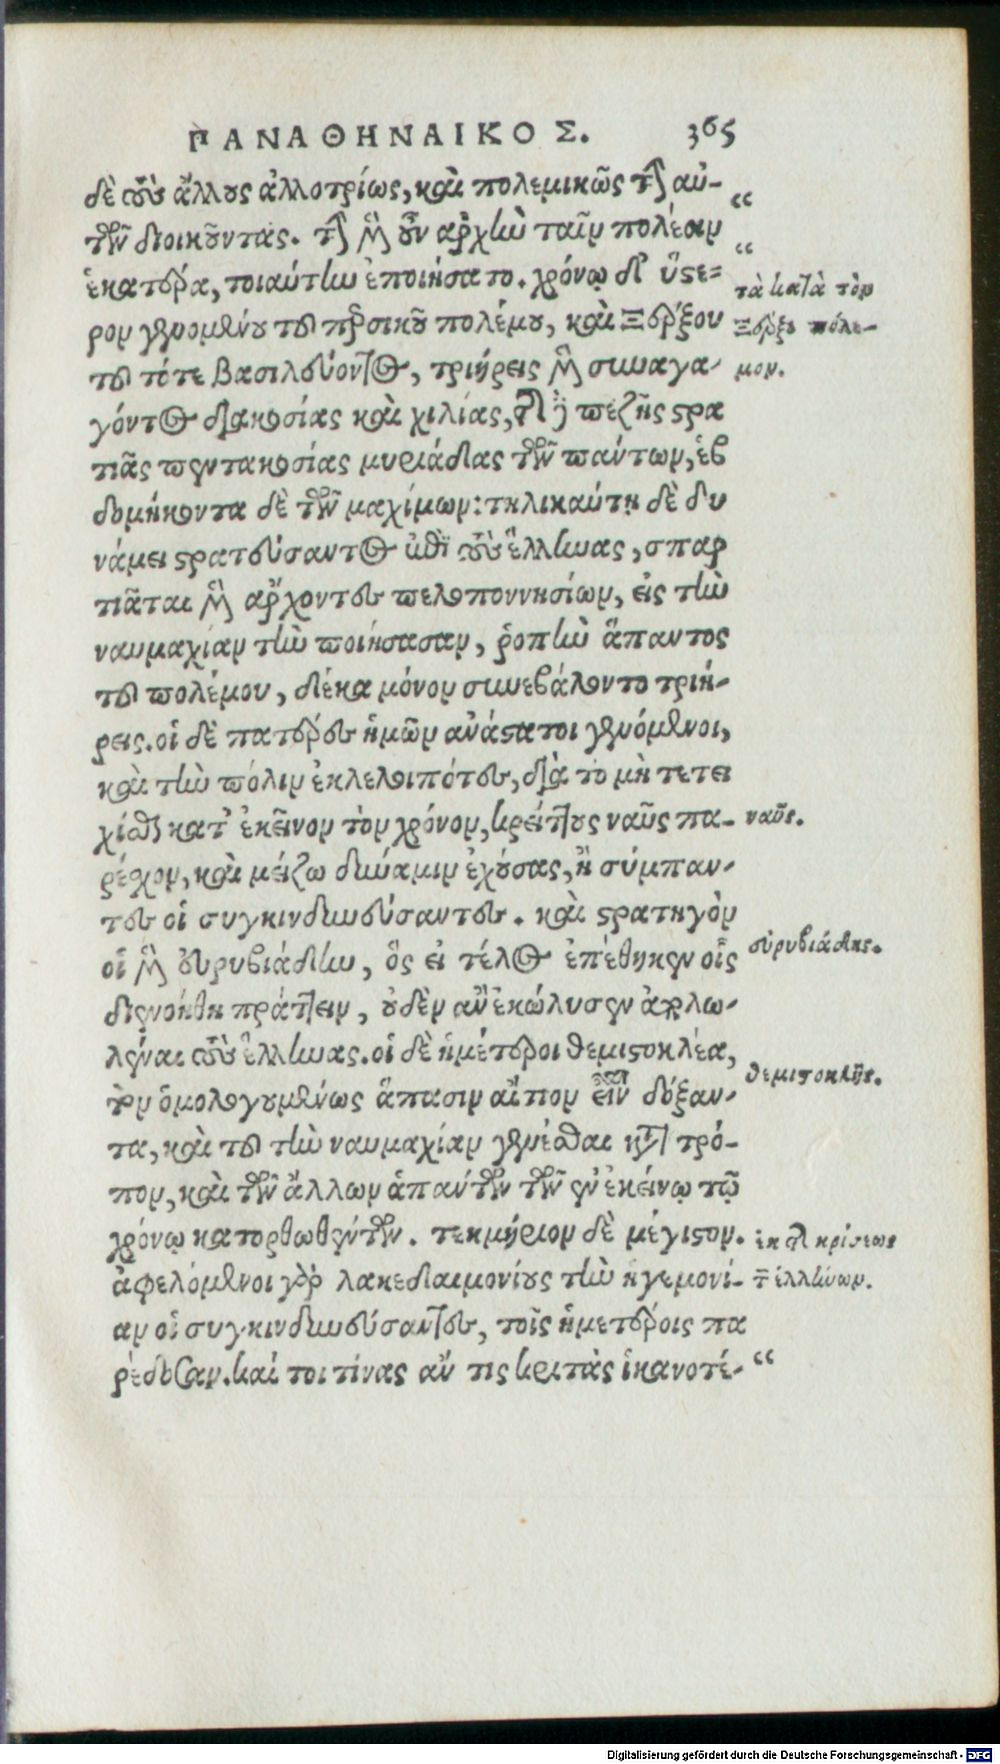 ΠΑΝΑΘΗΝΑΙΚΟΣ. 365
δὲ τοὺς ἄλλους ἀλλοτρίως, καὶ πολεμικῶς τὴν αὑ-
τῶν διοικοῦντας. τὴν μὲν οὖν ἀρχὴν ταῖν πολέοιν
ἑκατέρα, τοιαύτην ἐποιήσατο. χρόνῳ δ' ὕστε-
ρον γενομένου τοῦ περσικοῦ πολέμου, καὶ Ξέρξου
τοῦ τότε βασιλεύοντος, τριήρεις μὲν συναγα
γόντος διακοσίας καὶ χιλίας, τῆς δὲ πεζῆς στρα
τιᾶς πεντακοσίας μυριάδας τῶν πάντων, ἑβ
δομήκοντα δὲ τῶν μαχίμων: τηλικαύτῃ δὲ δυ
νάμει στρατεύσαντος ἐπὶ τοὺς ἕλληνας, σπαρ
τιᾶται μὲν ἄρχοντες πελοποννησίων, εἰς τὴν
ναυμαχίαν τὴν ποιήσασαν, ῥοπὴν ἅπαντος
τοῦ πολέμου, δέκα μόνον συνεβάλοντο τριή-
ρεις. οἱ δὲ πατέρες ἡμῶν ἀνάστατοι γενόμενοι,
καὶ τὴν πόλιν ἐκλελοιπότες, διὰ τὸ μὴ τετει
χίσθαι κατ' ἐκεῖνον τὸν χρόνον, κρείττους ναῦς πα-
ρέσχον, καὶ μείζω δύναμιν ἐχούσας, ἢ σύμπαν-
τες οἱ συγκινδυνεύσαντες. καὶ στρατηγὸν
οἱ μὲν εὐρυβιάδην, ὃς εἰ τέλος ἐπέθηκεν οἷς
διενοήθη πράττειν, οὐδὲν ἂν ἐκώλυσεν ἀπολω-
λέναι τοὺς ἕλληνας. οἱ δὲ ἡμέτεροι θεμιστοκλέα,
τὸν ὁμολογουμένως ἅπασιν αἴτιον εἶναι δόξαν-
τα, καὶ τοῦ τὴν ναυμαχίαν γενέσθαι κατὰ τρό-
πον, καὶ τῶν ἄλλων ἁπάντων τῶν ἐν ἐκείνῳ τῷ
χρόνῳ κατορθωθέντων. τεκμήριον δὲ μέγιστον.
ἀφελόμενοι γὰρ λακεδαιμονίους τὴν ἡγεμονί-
αν οἱ συγκινδυνεύσαντες, τοῖς ἡμετέροις πα
ρέδοσαν. καί τοι τίνας ἄν τις κριτὰς ἱκανοτέ-
“
“
τὰ κατὰ τὸν
Ξέρξου πόλε-
μον.
ναῦς.
εὐρυβιάδης.
θεμιστοκλῆς.
ἐκ τῆς κρίσεως
τῶν ἑλλήνων.
“
Digitalisierung gefördert durch die Deutsche Forschungsgemeinschaft - DFG